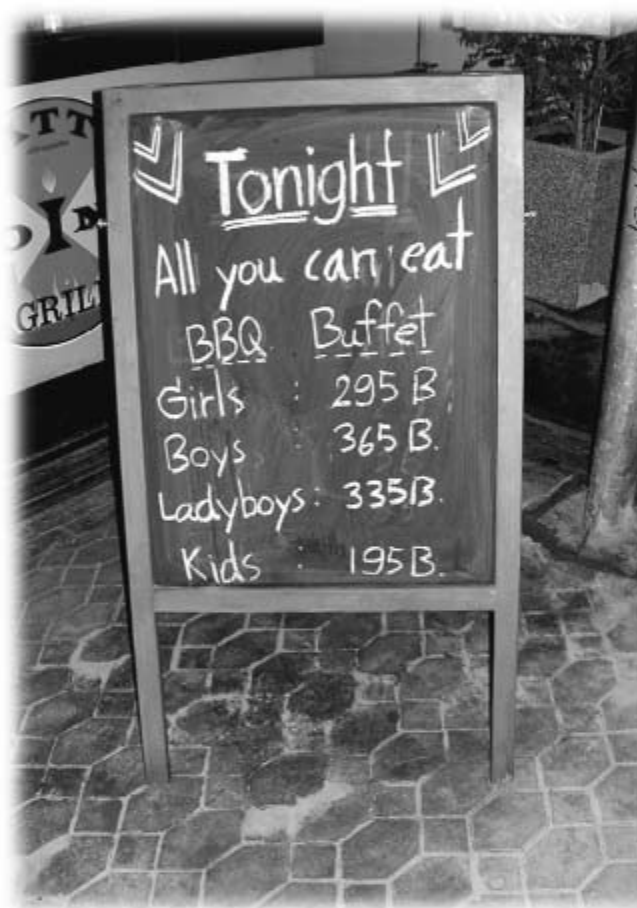 Tonight
All you can eat
BBQ Buffet
Girls : 295 B.
Boys : 365 B.
Ladyboys : 335 B.
Kids : 195 B.
GRILL